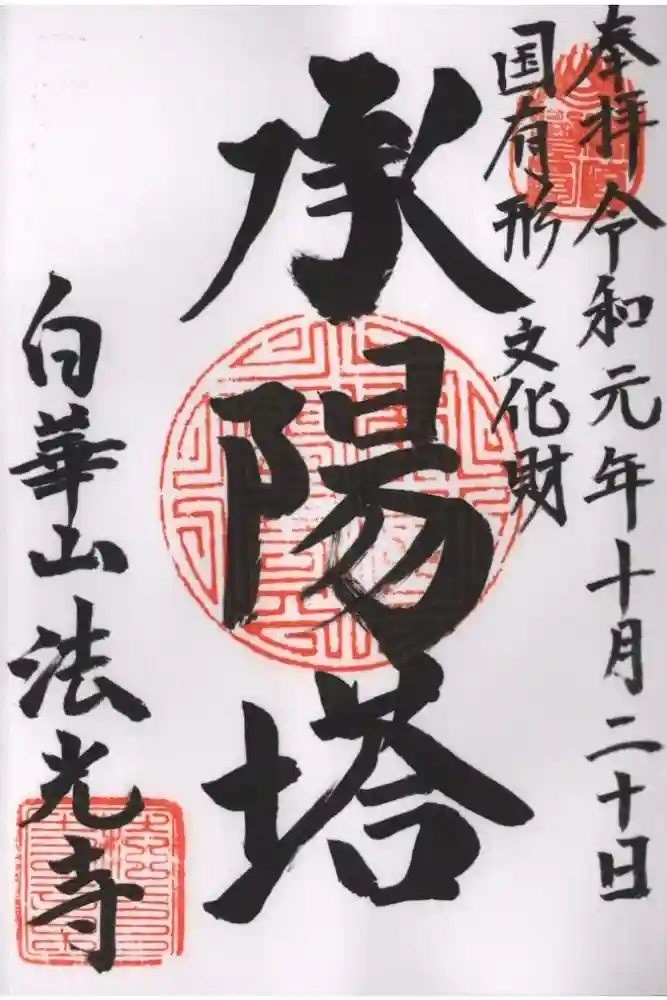 奉拝 令和元年十月二十日
国有形 文化財
承陽塔
白華山法光寺